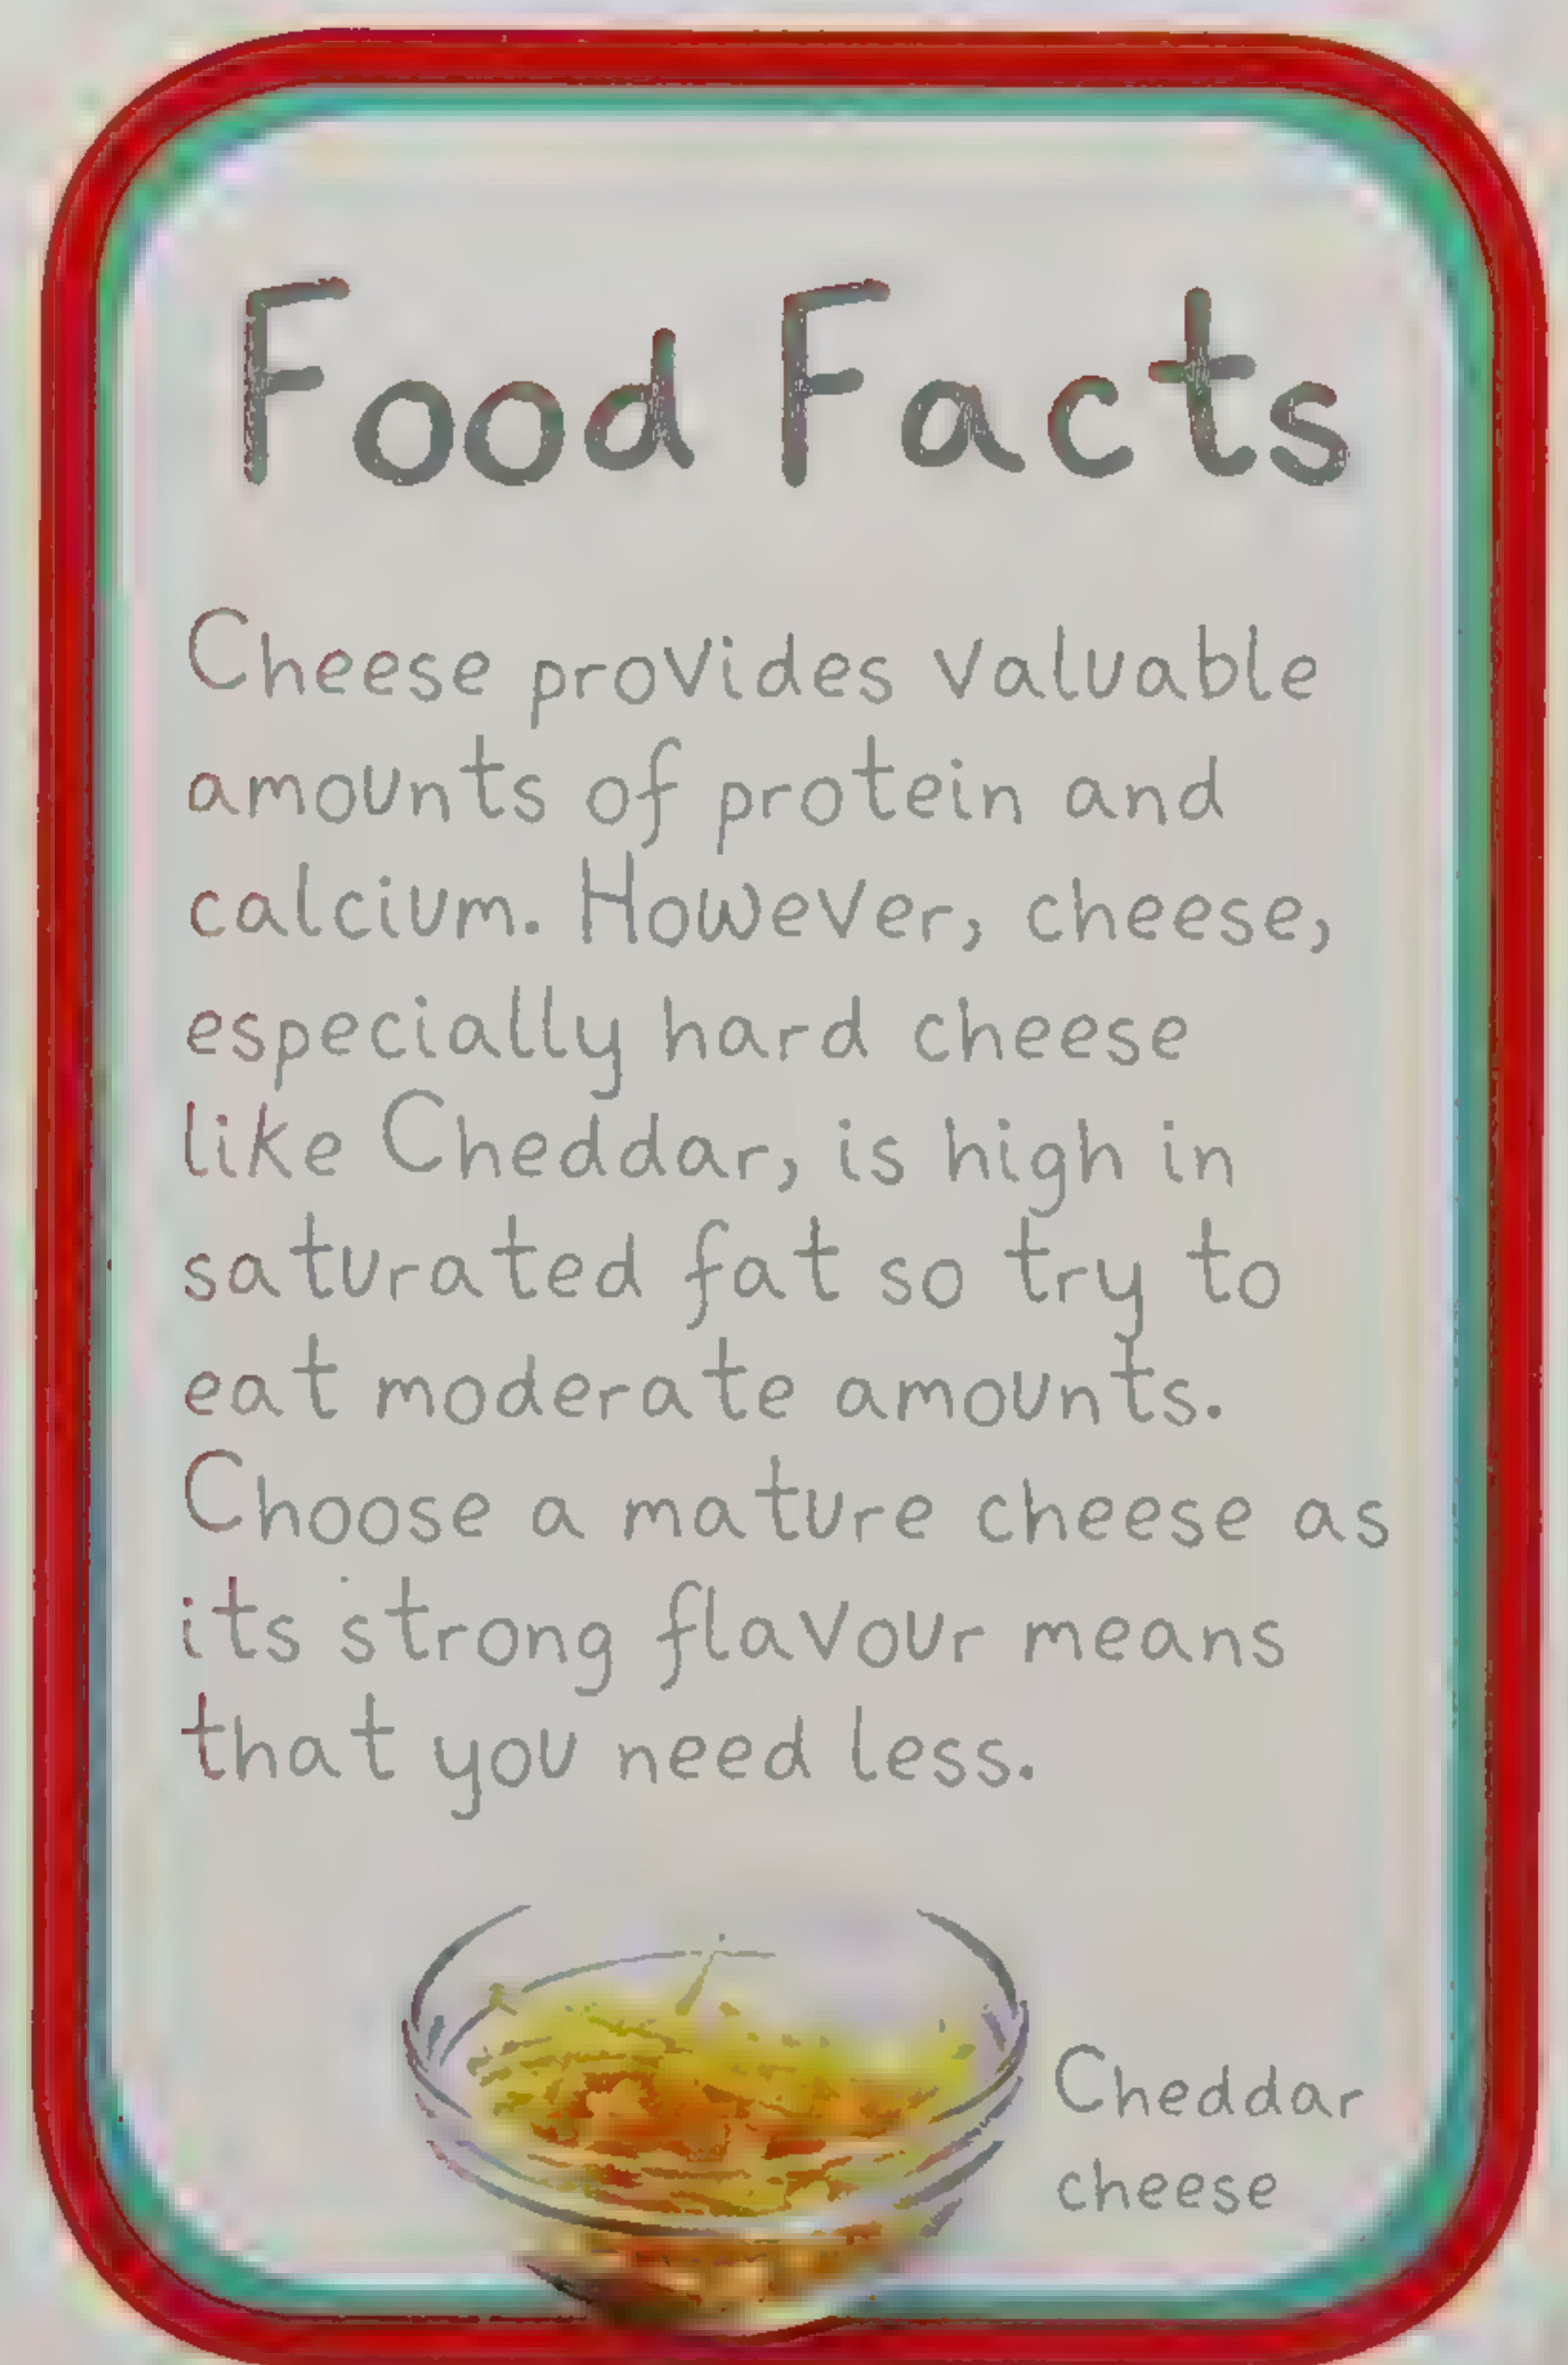 Food Facts
Cheese provides valuable
amounts of protein and
calcium. However, cheese,
especially hard cheese
like Cheddar, is high in
saturated fat so try to
eat moderate amounts.
Choose a mature cheese as
its strong flavour means
that you need less.
Cheddar
cheese